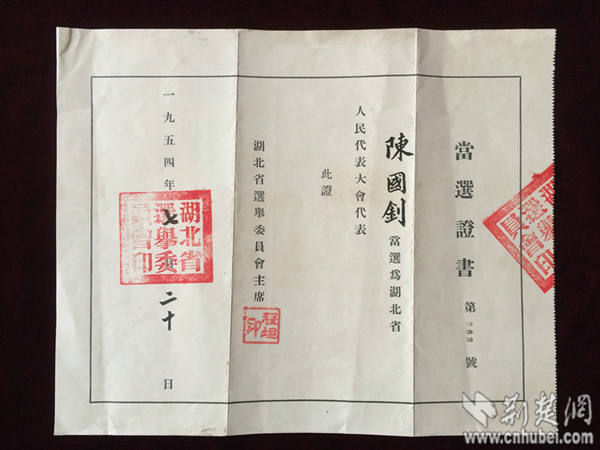 當選證書 第 號
陳國釗當選爲湖北省
人民代表大會代表
此證
湖北省選舉委員會主席
程坦印
一九五四年七月二十日
湖北省選舉委員會印
荆楚網
www.cnhubei.com